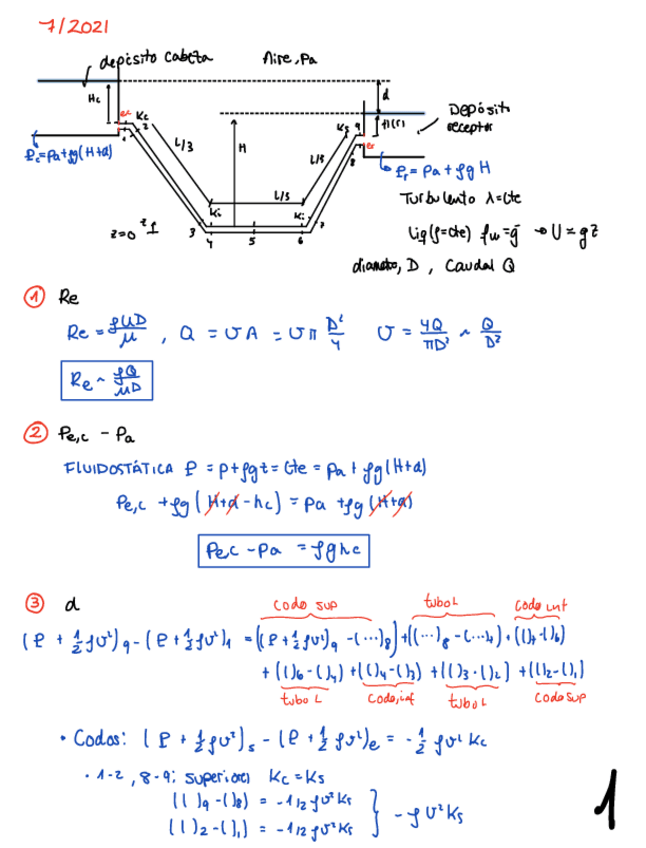 7/2021
depósito cabeza
Aire, Pa
Hc
d
ec
Kc
1
2
Ks
9
Depósito receptor
P_c = pa + ρg(H+d)
L/3
H
L/3
er
8
P_r = pa + ρg H
L/3
Ki
Ki
z=0
z
3
4
5
6
7
Turbulento λ=Cte
Liq(ρ=cte) fm = g → U = gz
diametro, D , Caudal Q
① Re
Re = ρUD/μ , Q = U A = U π D²/4 U = 4Q/πD² ~ Q/D²
Re ~ ρQ/μD
② Pe,c - Pa
FLUIDOSTÁTICA P = p + ρgz = Cte = Pa + ρg(H+d)
Pe,c + ρg(H+d - hc) = Pa + ρg(H+d)
Pe,c - Pa = ρghc
③ d
codo sup
tubo L
codo inf
(P + ½ρU²)9 - (P + ½ρU²)1 = ((P + ½ρU²)9 - (...)8) + ((...)8 - (...)7) + (()7 - ()6)
+ (()6 - ()4) + (()4 - ()3) + (()3 - ()2) + (()2 - ()1)
tubo L
Codo, inf
tubo L
codo sup
• Codos: (P + ½ρU²)s - (P + ½ρU²)e = -½ρU²Kc
• 1-2, 8-9: superiores Kc = Ks
(()9 - ()8) = -1/2 ρU²Ks
(()2 - ()1) = -1/2 ρU²Ks
} - ρU²Ks
1